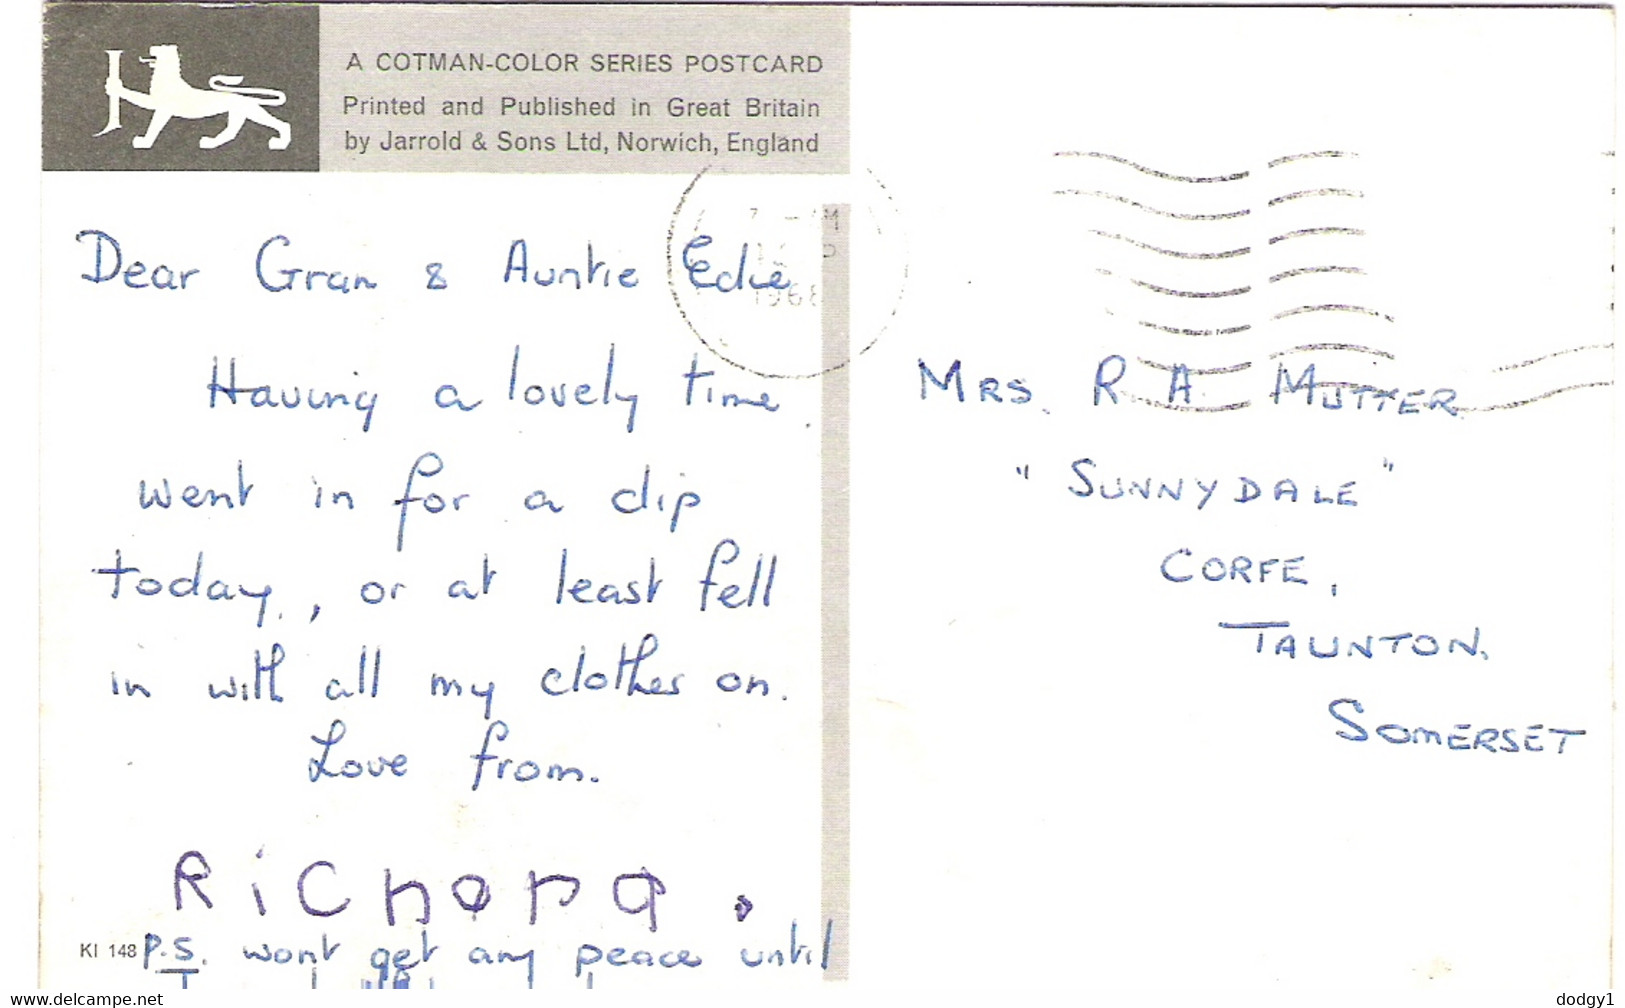 A COTMAN-COLOR SERIES POSTCARD
Printed and Published in Great Britain
by Jarrold & Sons Ltd, Norwich, England
1968
Dear Gran & Auntie Edie
Having a lovely time.
went in for a dip
today, or at least fell
in with all my clothes on.
Love from.
RicHard.
KI 148
P.S. wont get any peace until
MRS. R. A. MUTTER
"SUNNYDALE"
CORFE,
TAUNTON.
SOMERSET
www.delcampe.net
dodgy1